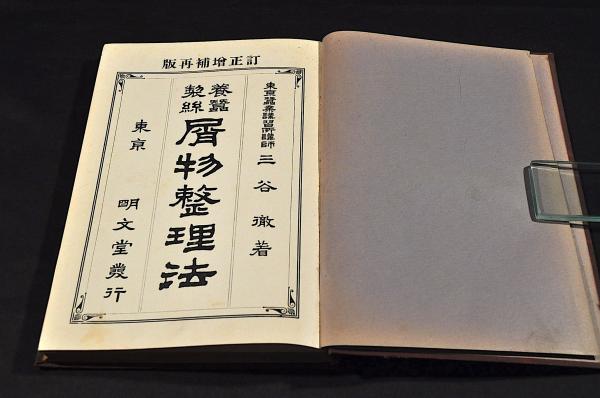 訂正增補再版
東京蠶業講習所講師 三谷徹著
養蠶
製絲
屑物整理法
東京 明文堂發行